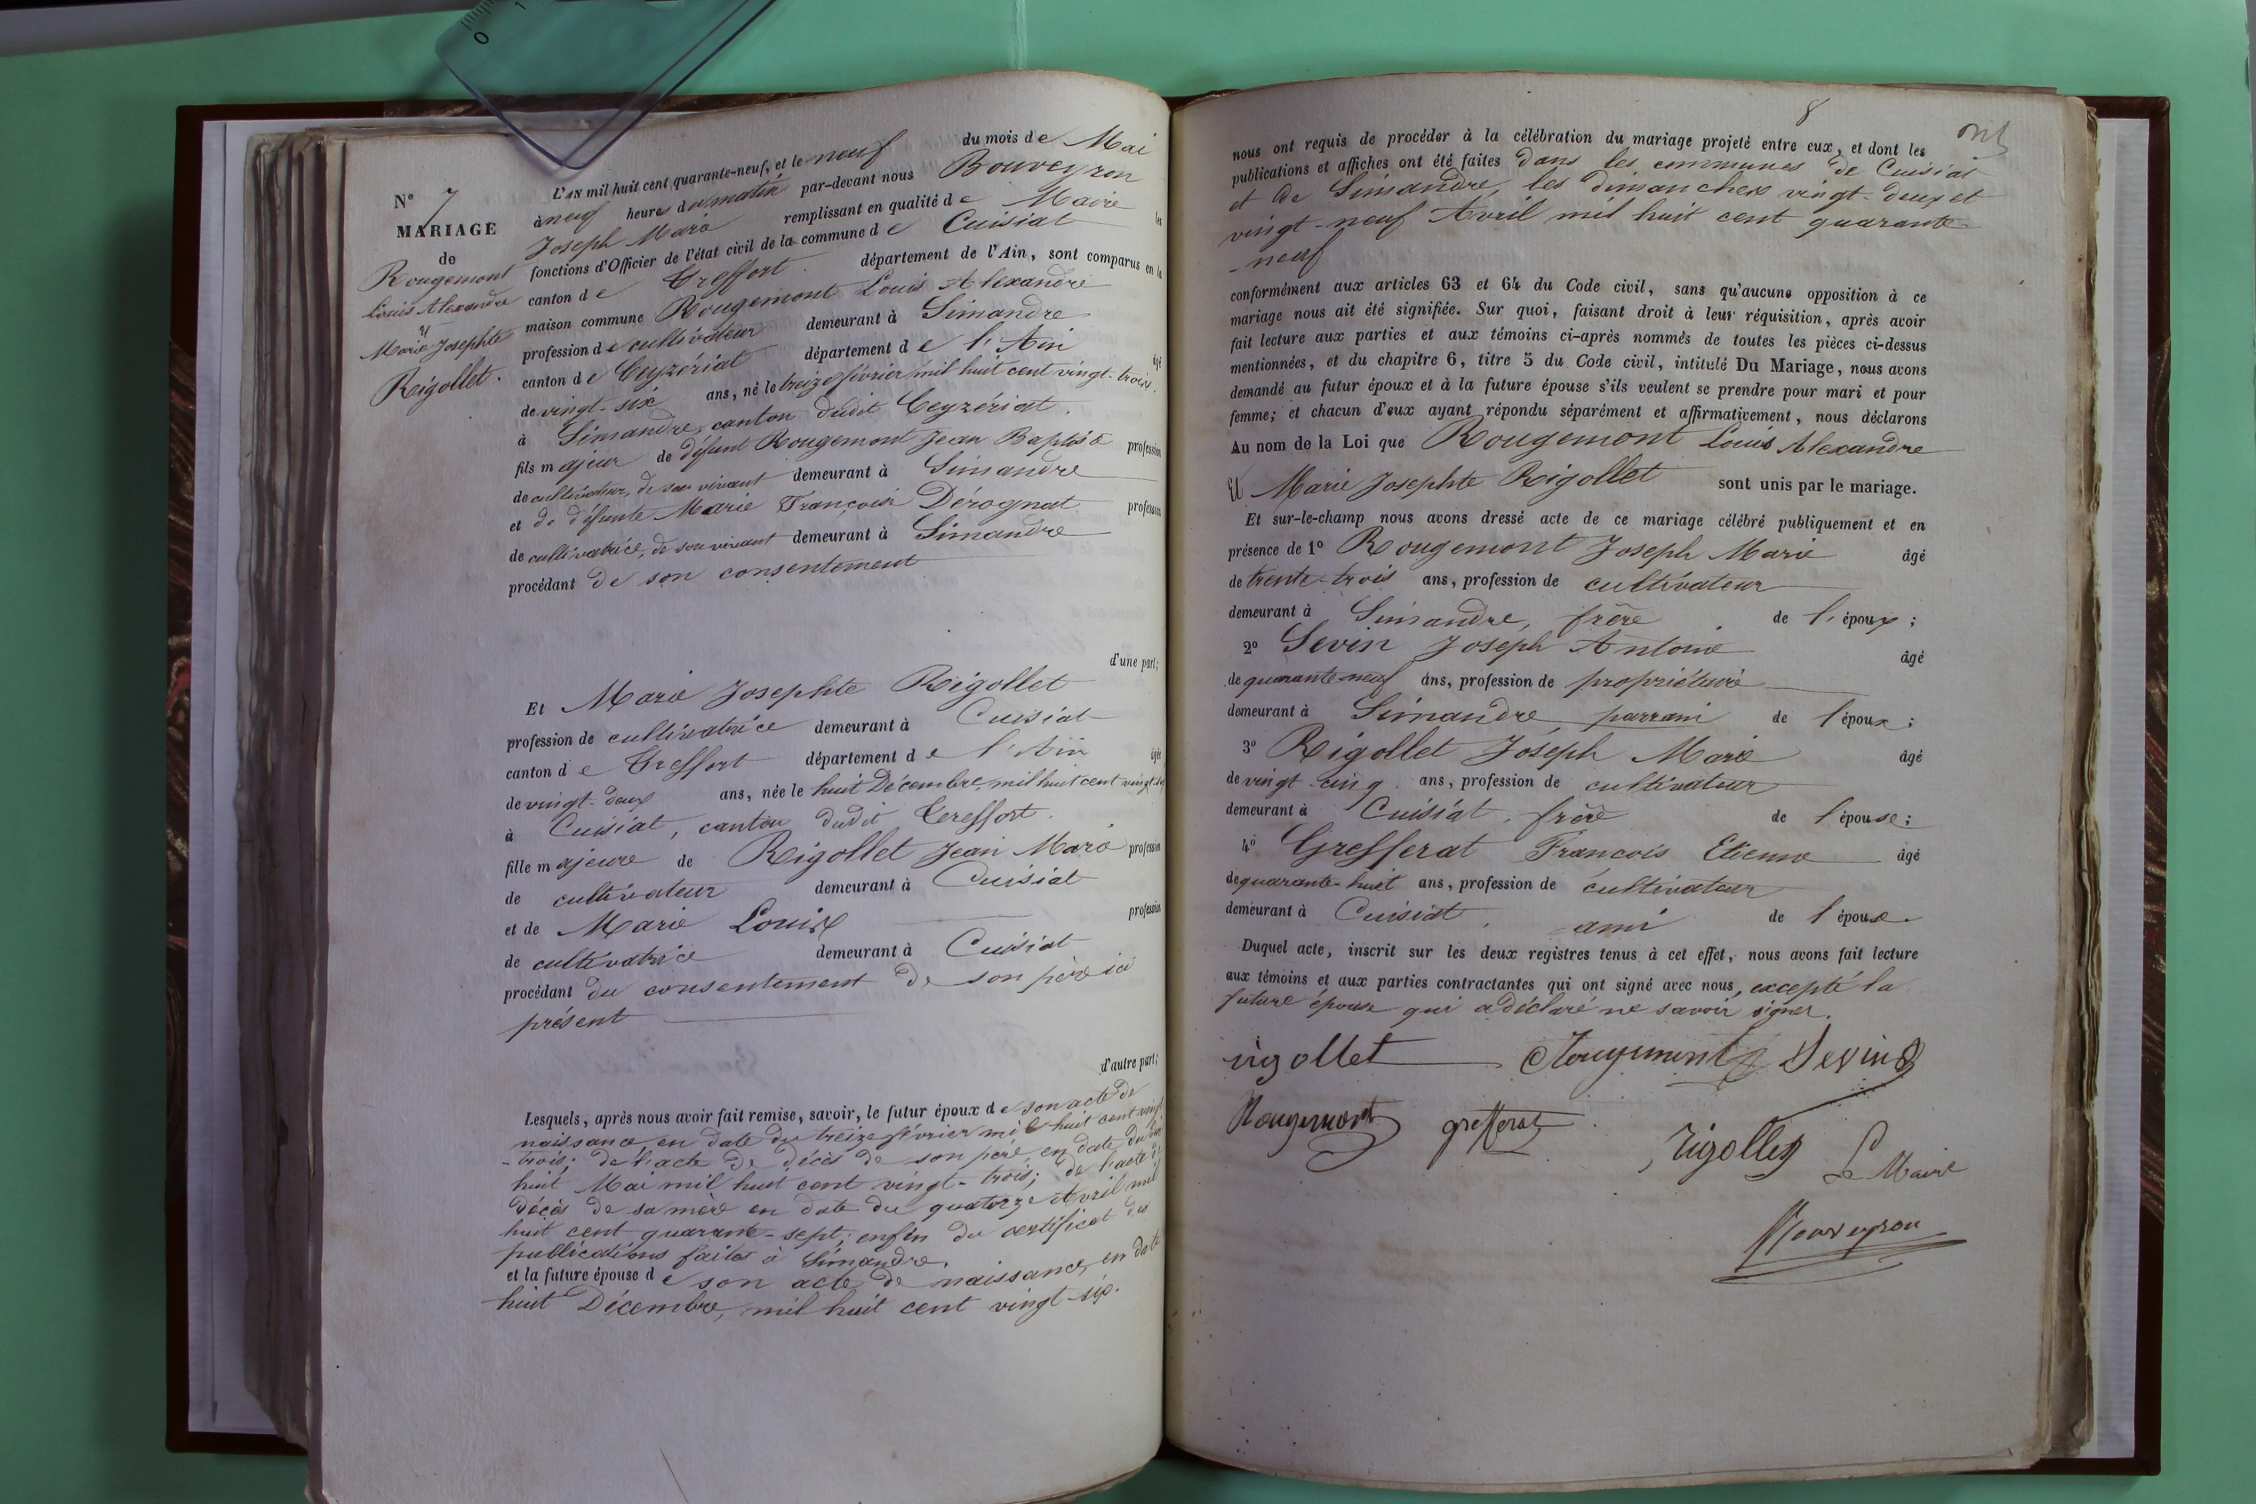 0 1
N° 7
MARIAGE
de
Rougemont
Louis Alexandre
et
Marie Josephte
Rigollet.
L'an mil huit cent quarante-neuf, et le neuf du mois de Mai
à neuf heures du matin par-devant nous Bouveyron
Joseph Marie remplissant en qualité de Maire les
fonctions d'Officier de l'état civil de la commune de Cuisiat
canton de Treffort département de l'Ain, sont comparus en la
maison commune Rougemont Louis Alexandre
profession de cultivateur demeurant à Simandre
canton de Ceyzériat département de l'Ain âgé
de vingt-six ans, né le treize février mil huit cent vingt-trois.
à Simandre, canton dudit Ceyzériat.
fils majeur de défunt Rougemont Jean Baptiste profession
de cultivateur, de son vivant demeurant à Simandre
et de défunte Marie Françoise Dérognat profession
de cultivatrice, de son vivant demeurant à Simandre
procédant de son consentement
d'une part;
Et Marie Josephte Rigollet
profession de cultivatrice demeurant à Cuisiat
canton de Treffort département de l'Ain âgée
de vingt-deux ans, née le huit Décembre, mil huit cent vingt-six
à Cuisiat, canton dudit Treffort.
fille majeure de Rigollet Jean Marie profession
de cultivateur demeurant à Cuisiat
et de Marie Louise profession
de cultivatrice demeurant à Cuisiat
procédant du consentement de son père ici
présent
d'autre part;
Lesquels, après nous avoir fait remise, savoir, le futur époux de son acte de
naissance en date du treize février mil huit cent vingt
-trois; de l'acte de décès de son père, en date du
huit Mai mil huit cent vingt-trois; de l'acte de
décès de sa mère en date du quatorze Avril mil
huit cent quarante-sept; enfin du certificat des
publications faites à Simandre.
et la future épouse de son acte de naissance, en date
huit Décembre, mil huit cent vingt-six.
8
nous ont requis de procéder à la célébration du mariage projeté entre eux, et dont les
publications et affiches ont été faites dans les communes de Cuisiat
et de Simandre, les dimanches vingt-deux et
vingt-neuf Avril mil huit cent quarante
-neuf
conformément aux articles 63 et 64 du Code civil, sans qu'aucune opposition à ce
mariage nous ait été signifiée. Sur quoi, faisant droit à leur réquisition, après avoir
fait lecture aux parties et aux témoins ci-après nommés de toutes les pièces ci-dessus
mentionnées, et du chapitre 6, titre 5 du Code civil, intitulé Du Mariage, nous avons
demandé au futur époux et à la future épouse s'ils veulent se prendre pour mari et pour
femme; et chacun d'eux ayant répondu séparément et affirmativement, nous déclarons
Au nom de la Loi que Rougemont Louis Alexandre
Et Marie Josephte Rigollet sont unis par le mariage.
Et sur-le-champ nous avons dressé acte de ce mariage célébré publiquement et en
présence de 1° Rougemont Joseph Marie âgé
de trente-trois ans, profession de cultivateur
demeurant à Simandre, frère de l'époux;
2° Sevin Joseph Antoine âgé
de quarante-neuf ans, profession de propriétaire
demeurant à Simandre, parrain de l'époux;
3° Rigollet Joseph Marie âgé
de vingt-cinq ans, profession de cultivateur
demeurant à Cuisiat, frère de l'épouse;
4° Grefferat François Etienne âgé
de quarante-huit ans, profession de cultivateur
demeurant à Cuisiat, ami de l'épouse.
Duquel acte, inscrit sur les deux registres tenus à cet effet, nous avons fait lecture
aux témoins et aux parties contractantes qui ont signé avec nous, excepté la
future épouse qui a déclaré ne savoir signer.
rigollet Rougemont Sevin
Rougemont grefferat
Rigollet Le Maire
Bouveyron